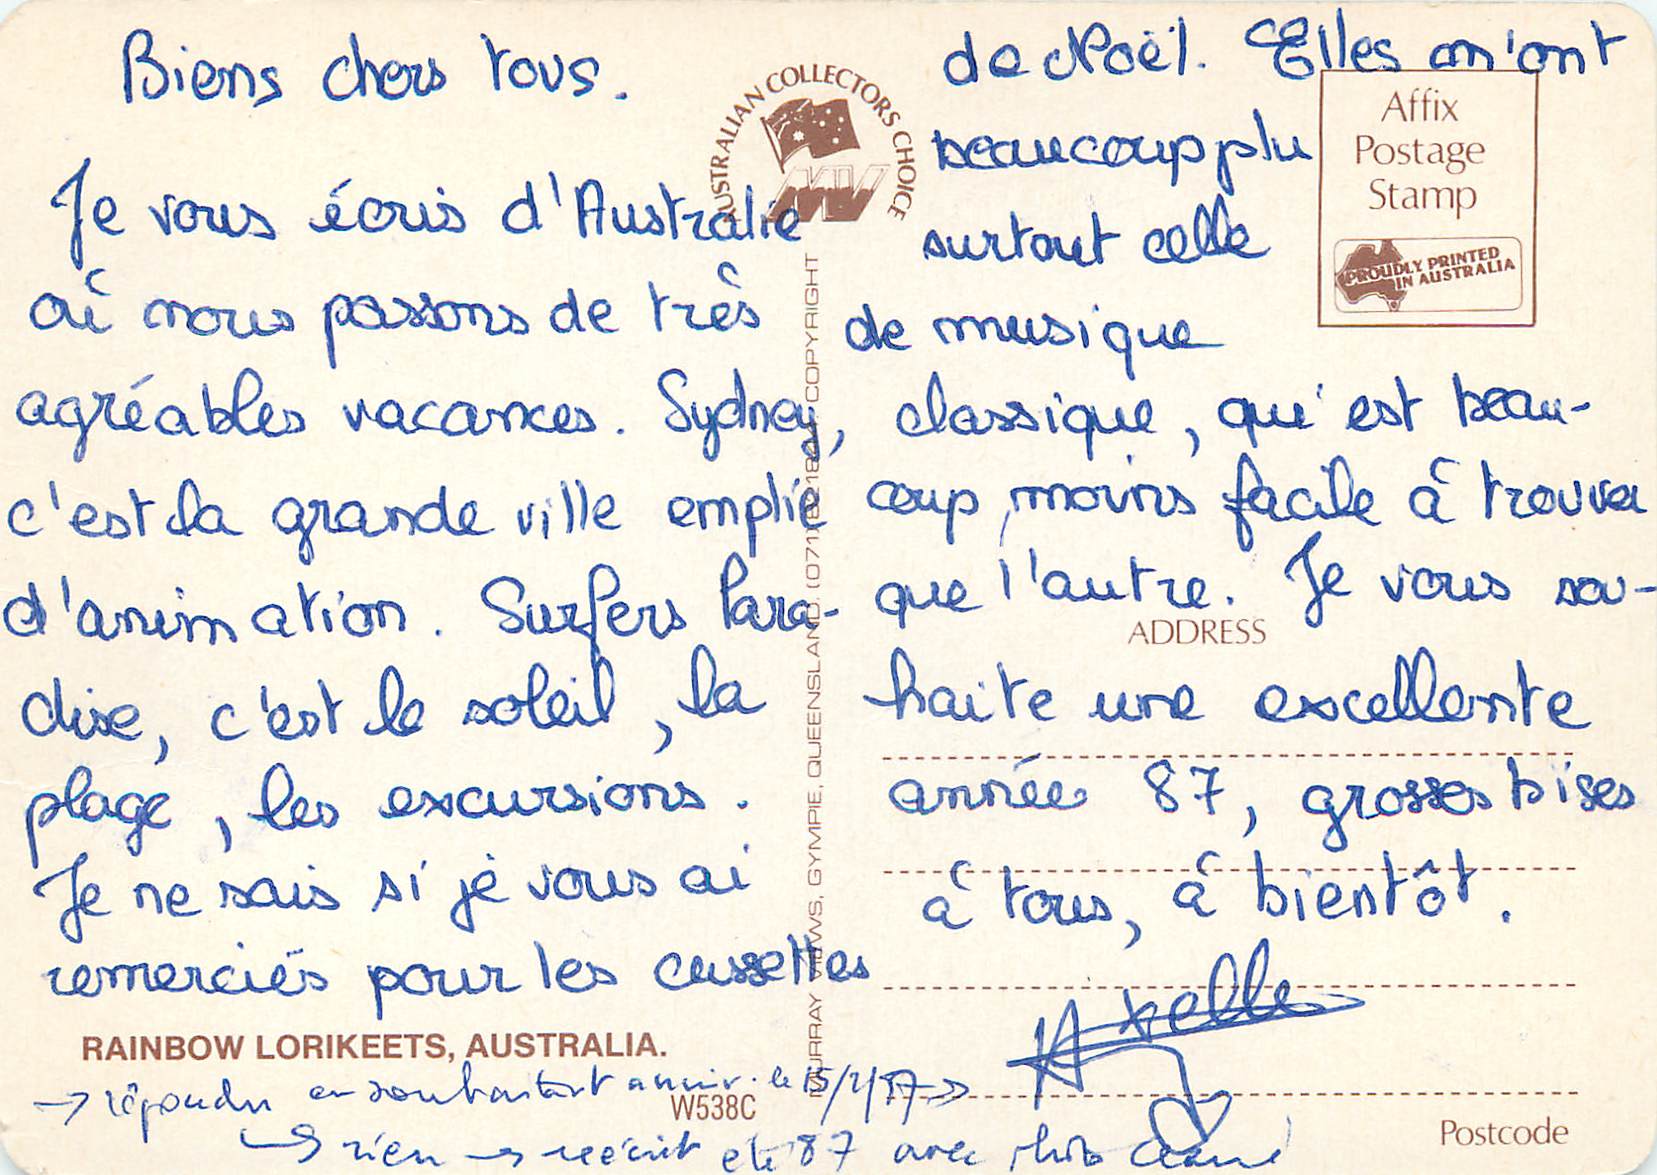 Biens chers tous.
Je vous écris d'Australie
où nous passons de très
agréables vacances. Sydney,
c'est la grande ville emplie
d'animation. Surfers Para-
dise, c'est le soleil, la
plage, les excursions.
Je ne sais si je vous ai
remerciés pour les cassettes
de Noël. Elles m'ont
beaucoup plu
surtout celle
de musique
classique, qui est beau-
coup moins facile à trouver
que l'autre. Je vous sou-
haite une excellente
année 87, grosses bises
à tous, à bientôt.
Axelle
AUSTRALIAN COLLECTORS CHOICE
MV
Affix
Postage
Stamp
PROUDLY PRINTED
IN AUSTRALIA
ADDRESS
Postcode
MURRAY VIEWS, GYMPIE, QUEENSLAND. COPYRIGHT
RAINBOW LORIKEETS, AUSTRALIA.
W538C
→ répondu en souhaitant le
→ rien → réécrit été 87 avec photo